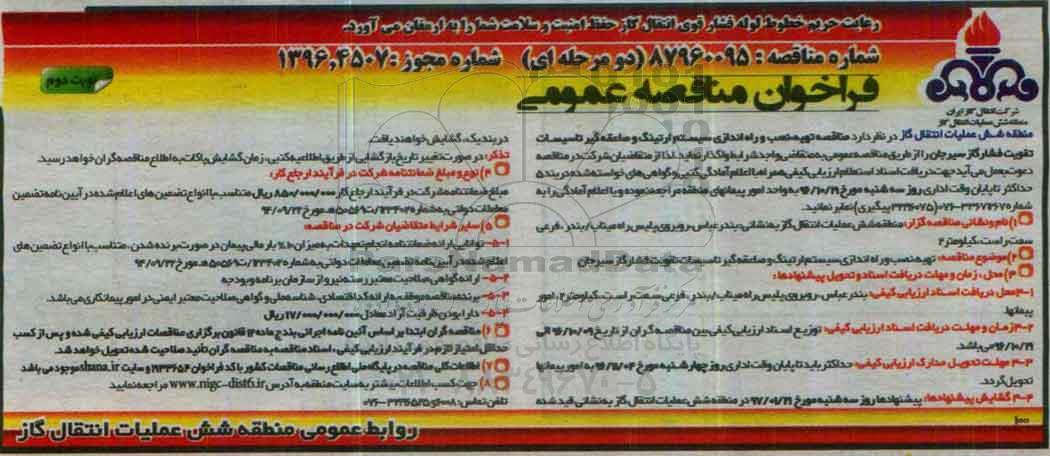 رعایت حریم خطوط لوله فشار قوی انتقال گاز حفظ امنیت و سلامت شما را به ارمغان می آورد.
شماره مناقصه : ۸۷۹۶۰۰۹۵ (دو مرحله ای) شماره مجوز : ۱۳۹۶,۴۵۰۷
فراخوان مناقصه عمومی
نوبت دوم
شرکت انتقال گاز ایران
منطقه شش عملیات انتقال گاز
منطقه شش عملیات انتقال گاز در نظر دارد مناقصه تهیه نصب و راه اندازی سیستم ارتینگ و صاعقه گیر تاسیسات
تقویت فشار گاز سیرجان را از طریق مناقصه عمومی به متقاضی واجد شرایط واگذار نماید. لذا از متقاضیان شرکت در مناقصه
دعوت بعمل می آید جهت دریافت اسناد استعلام ارزیابی کیفی همراه با اعلام آمادگی کتبی و گواهی های خواسته شده در بند ۵
حداکثر تا پایان وقت اداری روز سه شنبه مورخ ۹۶/۱۰/۱۹ به واحد امور پیمانهای منطقه مراجعه نموده و با اعلام آمادگی را به
شماره (پیگیری) نمابر نمایند.
۱) نام و نشانی مناقصه گزار: منطقه شش عملیات انتقال گاز به نشانی: بندرعباس روبروی پلیس راه میناب / بندر ، فرعی
سمت راست، کیلومتر ۲
۲) موضوع مناقصه: تهیه نصب و راه اندازی سیستم ارتینگ و صاعقه گیر تاسیسات تقویت فشار گاز سیرجان
۳) محل ، زمان و مهلت دریافت اسناد و تحویل پیشنهادها :
۳-۱ محل دریافت اسناد ارزیابی کیفی: بندرعباس - روبروی پلیس راه میناب / بندر ، فرعی سمت راست، کیلومتر ۲، امور
پیمانها.
۳-۲ زمان و مهلت دریافت اسناد ارزیابی کیفی: توزیع اسناد ارزیابی کیفی بین مناقصه گران از تاریخ ۹۶/۱۰/۰۹ الی
۹۶/۱۰/۱۹ می باشد.
۳-۳ مهلت تحویل مدارک ارزیابی کیفی: حداکثر باید تا پایان وقت اداری روز چهارشنبه مورخ ۹۶/۱۱/۰۴ به امور پیمانها
تحویل گردد.
۳-۴ گشایش پیشنهادها: پیشنهادها روز سه شنبه مورخ ۹۷/۰۱/۲۱ در منطقه شش عملیات انتقال گاز به نشانی قید شده
در بند یک، گشایش خواهند یافت
تذکر: در صورت تغییر تاریخ بازگشایی از طریق اطلاعیه کتبی، زمان گشایش پاکات به اطلاع مناقصه گران خواهد رسید.
۴) نوع و مبلغ ضمانتنامه شرکت در فرآیند ارجاع کار:
مبلغ ضمانتنامه شرکت در فرآیند ارجاع کار ۸۵۰/۰۰۰/۰۰۰ ریال متناسب با انواع تضمین های اعلام شده در آیین نامه تضمین
معاملات دولتی به شماره ۱۲۳۴۰۲/ت۵۰۶۵۹ه مورخ ۹۴/۰۹/۲۲
۵) سایر شرایط متقاضیان شرکت در مناقصه:
۵-۱- توانایی ارائه ضمانتنامه انجام تعهدات به میزان ۱۰٪ بار مالی پیمان در صورت برنده شدن ، متناسب با انواع تضمین های
اعلام شده در آیین نامه تضمین معاملات دولتی به شماره ۱۲۳۴۰۲/ت۵۰۶۵۹ه مورخ ۹۴/۰۹/۲۲
۵-۲- ارائه گواهی صلاحیت معتبر رسته نیرو از سازمان برنامه و بودجه
۵-۳- برنده مناقصه موظف به ارائه کد اقتصادی، شناسه ملی و گواهی صلاحیت معتبر ایمنی در امور پیمانکاری می باشد.
۵-۴- دارا بودن ظرفیت آزاد معادل ۱۷/۰۰۰/۰۰۰/۰۰۰ ریال
۶) مناقصه گران ابتدا بر اساس آئین نامه اجرائی بند ج ماده ۱۲ قانون برگزاری مناقصات ارزیابی کیفی شده و پس از کسب
حداقل امتیاز لازم در فرآیند ارزیابی کیفی ، اسناد مناقصه به مناقصه گران تأئید صلاحیت شده تحویل خواهد شد.
۷) اطلاعات کلی مناقصه در پایگاه ملی اطلاع رسانی مناقصات کشور با کد فراخوان و سایت shana.ir موجود می باشد
۸) جهت کسب اطلاعات بیشتر به سایت منطقه به آدرس www.nigc-dist6.ir مراجعه نمایید
تلفن تماس:
روابط عمومی منطقه شش عملیات انتقال گاز